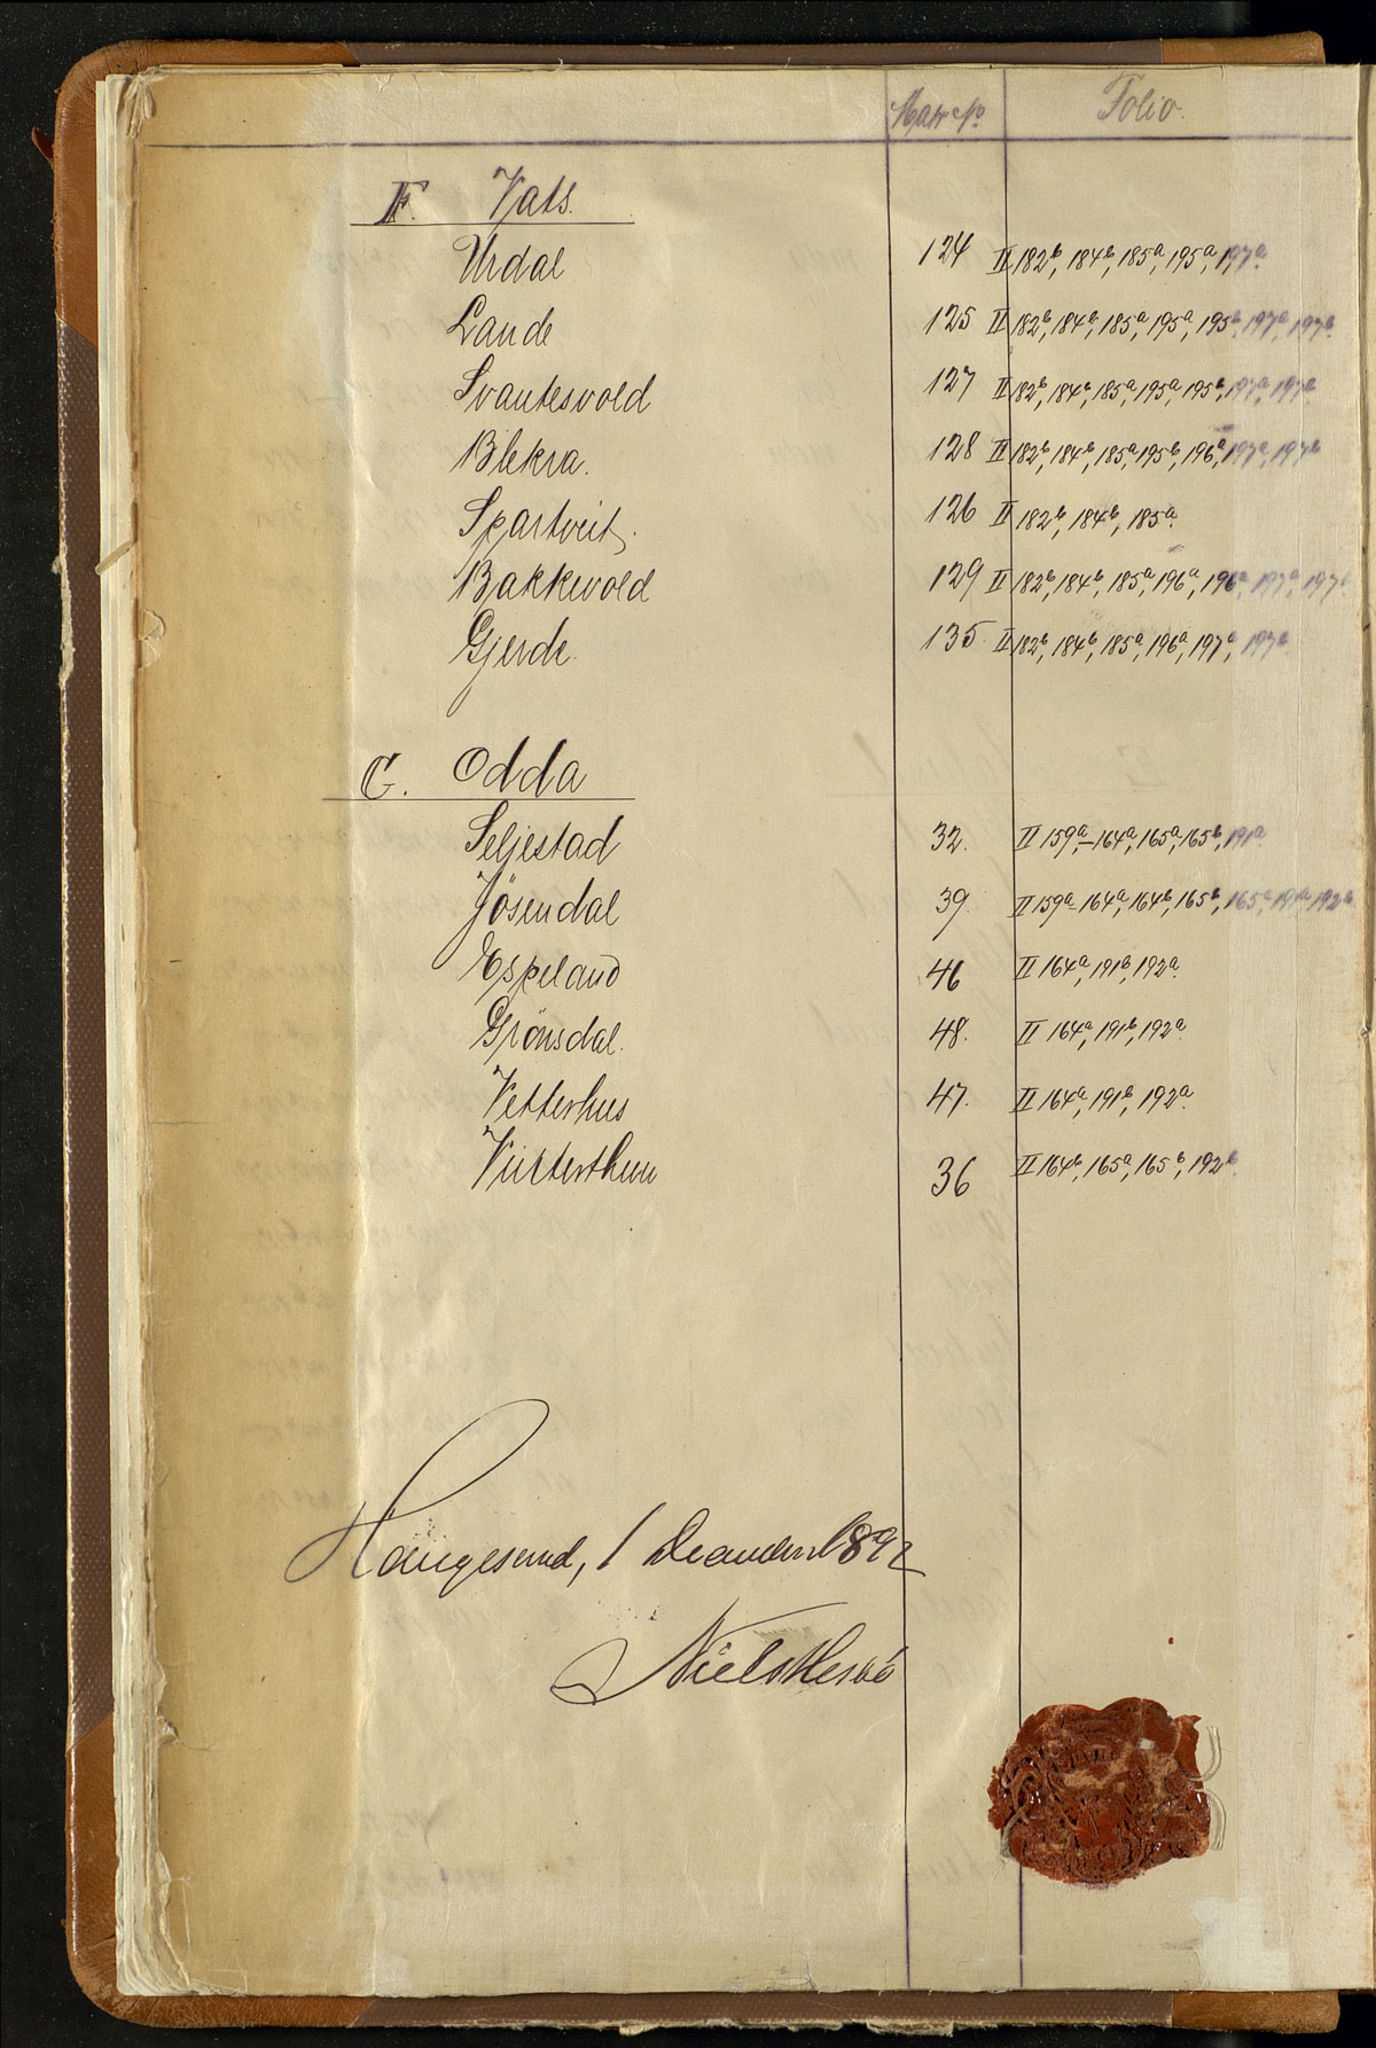 Matr No. Folio.
F. Vats.
Urdal 124 II 182b, 184b, 185a, 195a, 197a.
Lande 125 II 182b, 184b, 185a, 195a, 195b, 197a, 197b.
Svantesvold 127 II 182b, 184b, 185a, 195a, 195b, 197a, 197b
Blekra. 128 II 182b, 184b, 185a, 195b, 196a, 197a, 197b
Spartveit. 126 II 182b, 184b, 185a.
Bakkevold 129 II 182b, 184b, 185a, 196a, 196b, 197a, 197b.
Gjerde. 135 II 182b, 184b, 185a, 196a, 197a, 197b.
G. Odda
Seljestad 32. II 159a-164a, 165a, 165b, 191a.
Jösendal 39. II 159a-164a, 164b, 165b, 165a, 191a, 192b.
Espeland 46 II 164a, 191b, 192a.
Grönsdal. 48. II 164a, 191b, 192a.
Vetterhus 47. II 164a, 191b, 192a.
Vintertun 36 II 164b, 165a, 165b, 192b.
Haugesund, 1 December 1892
Niels